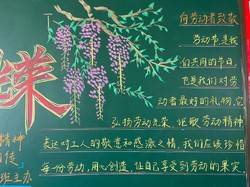 向劳动者致敬
劳动节是我
们共同的节日,
也是我们对劳
动者最好的礼物,它
弘扬劳动光荣、讴歌劳动精神
表达对工人的敬意和感激之情,我们应该珍惜
每份劳动,用心创造,让自己享受到劳动的果实
荣
精神
班主办